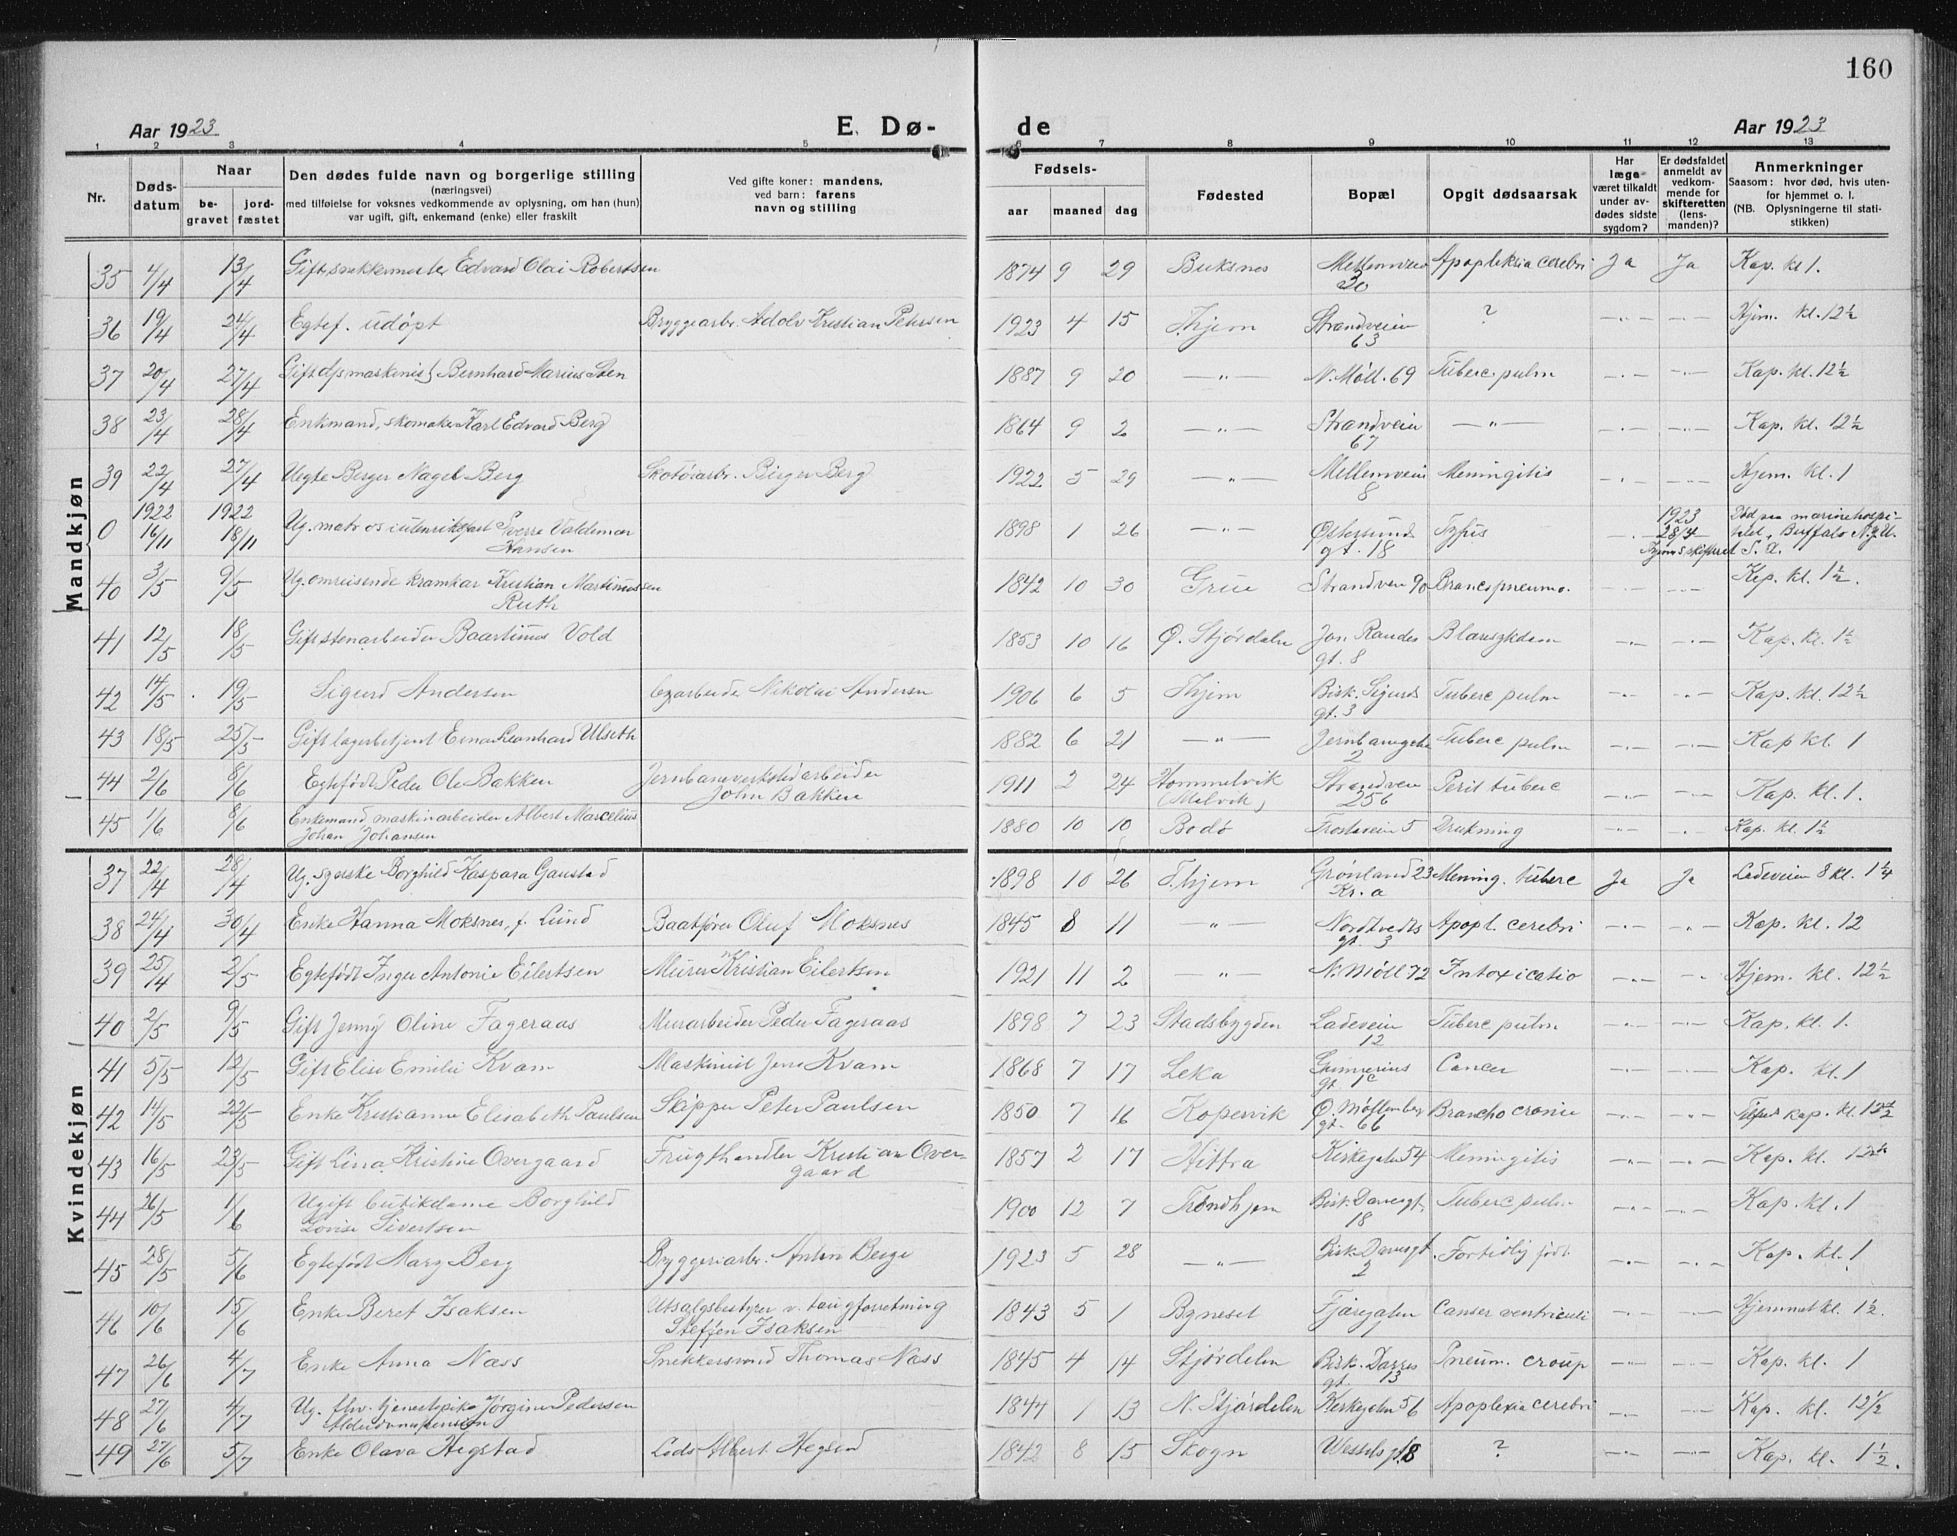 160
Aar 1923 E. Dø- de Aar 1923
1 2 3 4 5 6 7 8 9 10 11 12 13
Nr. Døds-datum Naar be-gravet jord-fæstet Den dødes fulde navn og borgerlige stilling (næringsvei) med tilføielse for voksnes vedkommende av oplysning, om han (hun) var ugift, gift, enkemand (enke) eller fraskilt Ved gifte koner: mandens, ved barn: farens navn og stilling Fødsels- aar maaned dag Fødested Bopæl Opgit dødsaarsak Har læge været tilkaldt under av-dødes sidste sygdom? Er dødsfaldet anmeldt av vedkom-mende for skifteretten (lens-manden)? Anmerkninger Saasom: hvor død, hvis uten-for hjemmet o. l. (NB. Oplysningerne til stati-stikken)
Mandkjøn
35 4/4 13/4 Gift snekkermester Edvard Olai Robertsen 1874 9 29 Buksnes Mellemveien 20 Apopleksia cerebri Ja Ja Kap. kl 1.
36 19/4 24/4 Egtef. udöpt Bryggearb. Adolv Kristian Petersen 1923 4 15 T.hjem Strandveien 63 ? —"— —"— Hjem. kl. 12½
37 20/4 27/4 Gift dpsmaskinist Bernhard Marius Steen 1887 9 20 —"— N. Möll. 69 Tuberc. pulm —"— —"— Kap. kl. 12½
38 23/4 28/4 Enkmand, skomaker Karl Edvard Berg 1864 9 2 —"— Strandveien 67 —"— —"— —"— Kap. kl. 12½
39 22/4 27/4 Uegte Berger Nagel Berg Skotöiarbr. Birger Berg 1922 5 29 —"— Mellemveien 8 Meningitis —"— —"— Hjem. kl. 1
0 1922 16/11 1922 18/11 Ug. matros i utenriksfart Sverre Valdemar Hansen 1898 1 26 —"— Östersunds gt. 18 Tyfus —"— 1923 28/4 Död paa marinehospitalet, Buffalo N.Y. U.S.A.
40 3/5 9/5 Ug. omreisende kramkar Kristian Martinussen Ruth 1842 10 30 Grue Strandvein 90 Broncopneumo. —"— —"— Kap. kl. 1½.
41 12/5 18/5 Gift stenarbeider Baartinus Vold 1853 10 16 Ö. Stjördalen Jon Raudes gt. 8 Blæresykdom —"— —"— Kap. kl. 1½
42 14/5 19/5 Sigurd Andersen Nikolai Andersen 1906 6 5 T.hjem Bisk. Sigurds gt. 3 Tuberc pulm —"— —"— Kap. kl. 12½
43 18/5 25/5 Gift lagerbetjent Einar Leonhard Ulseth 1882 6 21 —"— Jernbanegaten 2 Tuberc pulm —"— —"— Kap kl. 1
44 2/6 8/6 Egtefödt Peder Ole Bakken Jernbaneverkstedarbeider John Bakken 1911 2 24 Hommelvik (Malvik) Strandvein 256 Perit tuberc —"— —"— Kap. kl. 1.
45 1/6 8/6 Enkemand maskinarbeider Albert Marcelius Johan Johansen 1880 10 10 Bodö Frostaveien 5 Drukning —"— —"— Kap. kl. 1½
Kvindekjøn
37 22/4 28/4 Ug. syerske Borghild Kaspara Gaustad 1898 10 26 T.hjem Grönland 23 Kr.a Mening. tuberc Ja Ja Ladeveien 8 kl. 1¼
38 24/4 30/4 Enke Hanna Moksnes, f. Lund Baatförer Oluf Moksnes 1845 8 11 —"— Nordtvedts gt. 3 Apopl. cerebri —"— —"— Kap. kl. 12
39 25/4 2/5 Egtefödt Inger Antonie Eilertsen Murer Kristian Eilertsen 1921 11 2 —"— N. Möll 72 Intoxicatio —"— —"— Hjem. kl. 12½
40 2/5 9/5 Gift Jenny Oline Fageraas Murarbeider Peder Fageraas 1898 7 23 Stadsbygden Ladeveien 12 Tuberc pulm —"— —"— Kap. kl. 1.
41 5/5 12/5 Gift Elise Emilie Kvam Maskinist Jens Kvam 1868 7 17 Leka Gunnerius gt 1c Cancer —"— —"— Kap. kl. 1
42 14/5 22/5 Enke Kristianne Elisabeth Paulsen Skipper Peter Paulsen 1850 7 16 Kopervik Ö. Möllenberg gt. 66 Broncho cronic —"— —"— kap. kl. 12½
43 16/5 23/5 Gift Lina Kristine Overgaard Frugthandler Kristian Overgaard 1857 2 17 Hittra Kirkegaten 54 Meningitis —"— —"— Kap. kl. 12½
44 26/5 1/6 Ugift butikdame Borghild Lovise Sivertsen 1900 12 7 Trondhjem Bisk. Daresgt. 18 Tuberc pulm. —"— —"— Kap. kl. 1
45 28/5 5/6 Egtefödt Mary Berg Bryggeriarbr. Anton Berge 1923 5 28 —"— Bisk. Daresgt. 2 Fortidlig födt —"— —"— Kap. kl. 1
46 10/6 15/6 Enke Beret Isaksen Utsalgsbestyrer v. taugforretning Steffen Isaksen 1843 5 1 Bynesset Fjæregaten Canser ventriculi —"— —"— Hjemmet kl. 1½.
47 26/6 4/7 Enke Anna Næss Snekkersvend Thomas Næss 1845 4 14 Stjördalen Bisk. Darres gt. 13 Pneum. croup —"— —"— Kap. kl. 1
48 27/6 4/7 Ug. fhv. tjenestepike Jörgine Pedersen 1844 1 13 N. Stjördalen Kirkegaten 56 Apoplexia cerebri —"— —"— Kap. kl. 12½
49 27/6 5/7 Enke Olava Hegstad Lods Albert Hegstad 1842 8 15 Skogn Wesselsgt. 18 ? —"— —"— Kap. kl. 1½.